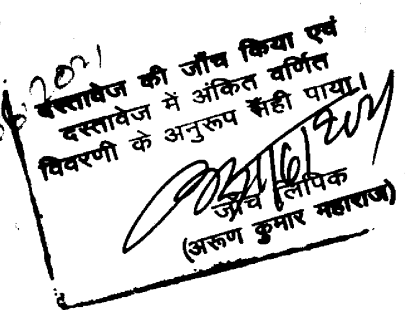 दस्तावेज की जाँच किया एवं
दस्तावेज में अंकित वर्णित
विवरणी के अनुरूप सही पाया।
जाँच लिपिक
(अरूण कुमार महाराज)